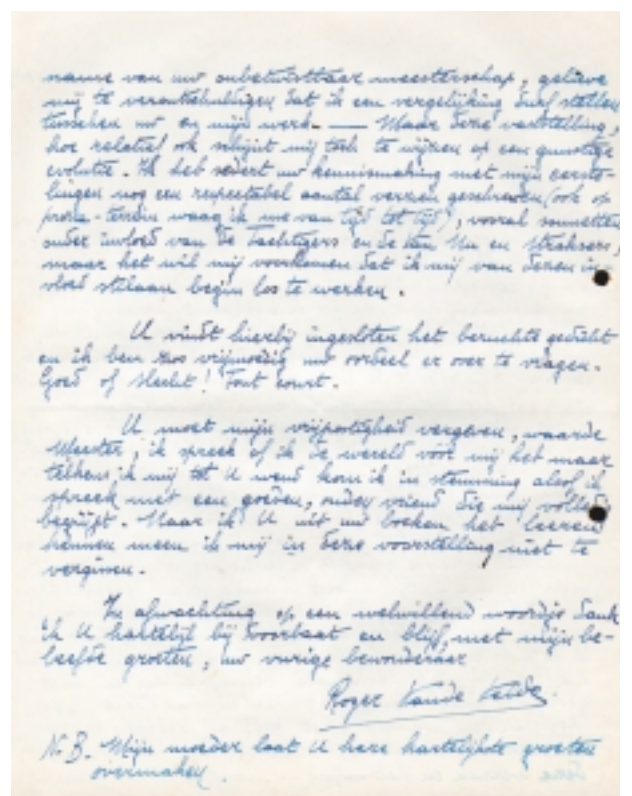 name van uw onbetwistbaar meesterschap, gelieve
mij te verontschuldigen dat ik een vergelijking durf stellen
tusschen uw en mijn werk. — Maar deze vaststelling,
hoe relatief ook noopt mij toch te wijzen op een gunstige
evolutie. Ik heb sedert uw kennismaking met mijn eerste-
lingen nog een respectabel aantal verzen geschreven (ook op
proza-terrein waag ik me van tijd tot tijd), vooral sonnetten
onder invloed van de Tachtigers en de Van Nu en Straksers,
maar het wil mij voorkomen dat ik mij van dezen in-
vloed stilaan begin los te werken.
U vindt hierbij ingesloten het beruchte gedicht
en ik ben zoo vrijmoedig uw oordeel er over te vragen.
Goed of slecht! Tout court.
U moet mijn vrijpostigheid vergeven, waarde
Meester, ik spreek of ik de wereld vóór mij heb maar
telkens ik mij tot U wend kom ik in stemming alsof ik
spreek met een goeden, ouden vriend die mij volledig
begrijpt. Maar ik U uit uw boeken heb leeren
kennen meen ik mij in deze voorstelling niet te
vergissen.
In afwachting op een welwillend woordje dank
ik U hartelijk bij voorbaat en blijf, met mijn be-
leefde groeten, uw vurige bewonderaar
Roger Vande Velde.
N.B. Mijn moeder laat U hare hartelijkste groeten
overmaken.